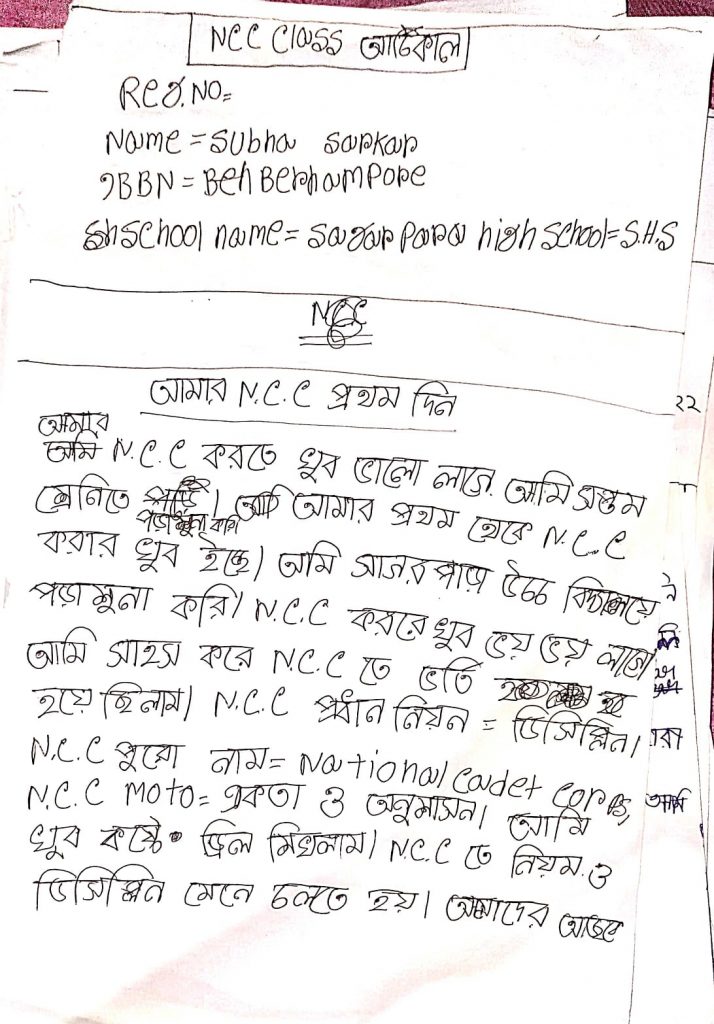 NCC Class আর্টিকাল
Reg.No=
Name = Subha Sarkar
9BBN = Beh Berhampore
School name = Sagar Para high School = S.H.S
NCC
আমার N.C.C প্রথম দিন
২২
আমার
N.C.C করতে খুব ভালো লাগে. আমি সপ্তম
শ্রেনিতে পড়াশুনা করি। আমার প্রথম থেকে N.C.C
করার খুব ইচ্ছে। আমি সাগর পাড়া উচ্চ বিদ্যালয়ে
পড়াশুনা করি। N.C.C কররে খুব ভয় ভয় লাগে।
আমি সাহস করে N.C.C তে ভর্তি
হয়ে ছিলাম। N.C.C প্রধান নিয়ন = ডিসিপ্লিন।
N.C.C পুরো নাম= National Cadet Corps,
N.C.C Moto= একতা ও অনুশাসন। আমি
খুব কষ্টে ড্রিল শিখলাম। N.C.C তে নিয়ম ও
ডিসিপ্লিন মেনে চলতে হয়। আমাদের